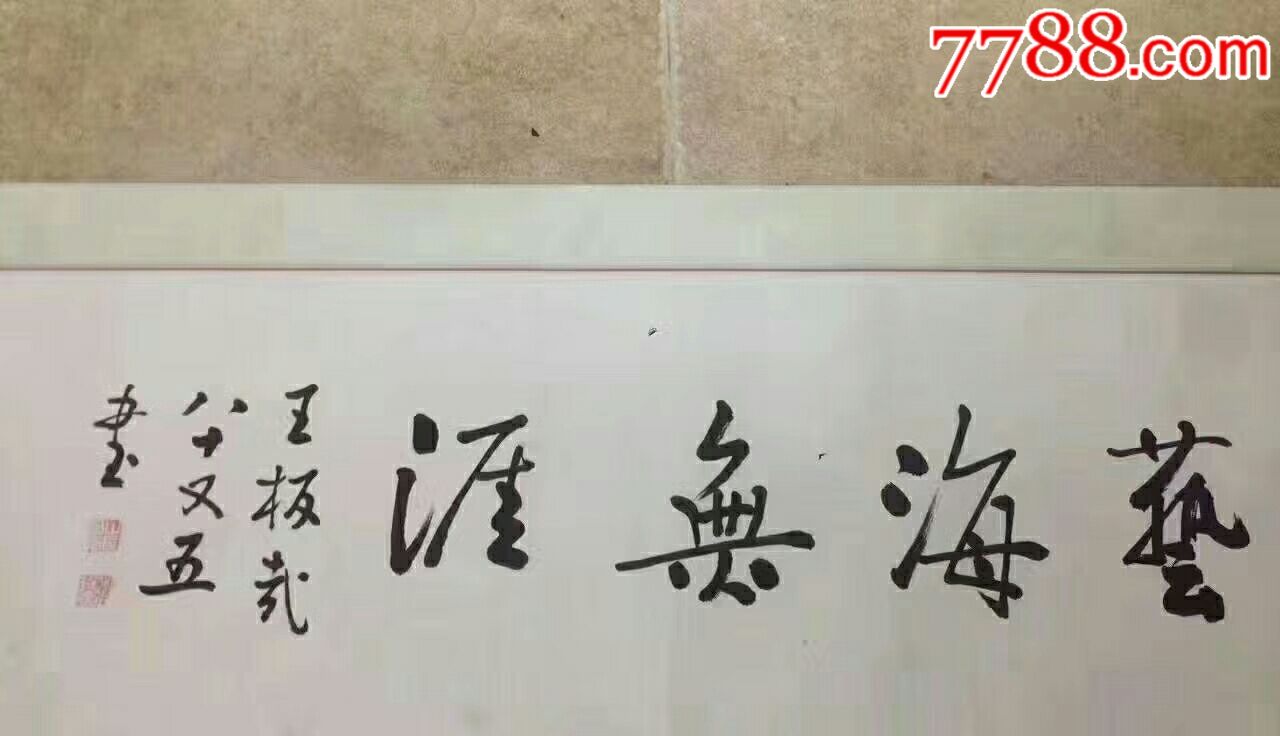 7788.com
藝海無涯
王板哉
八十又五
書